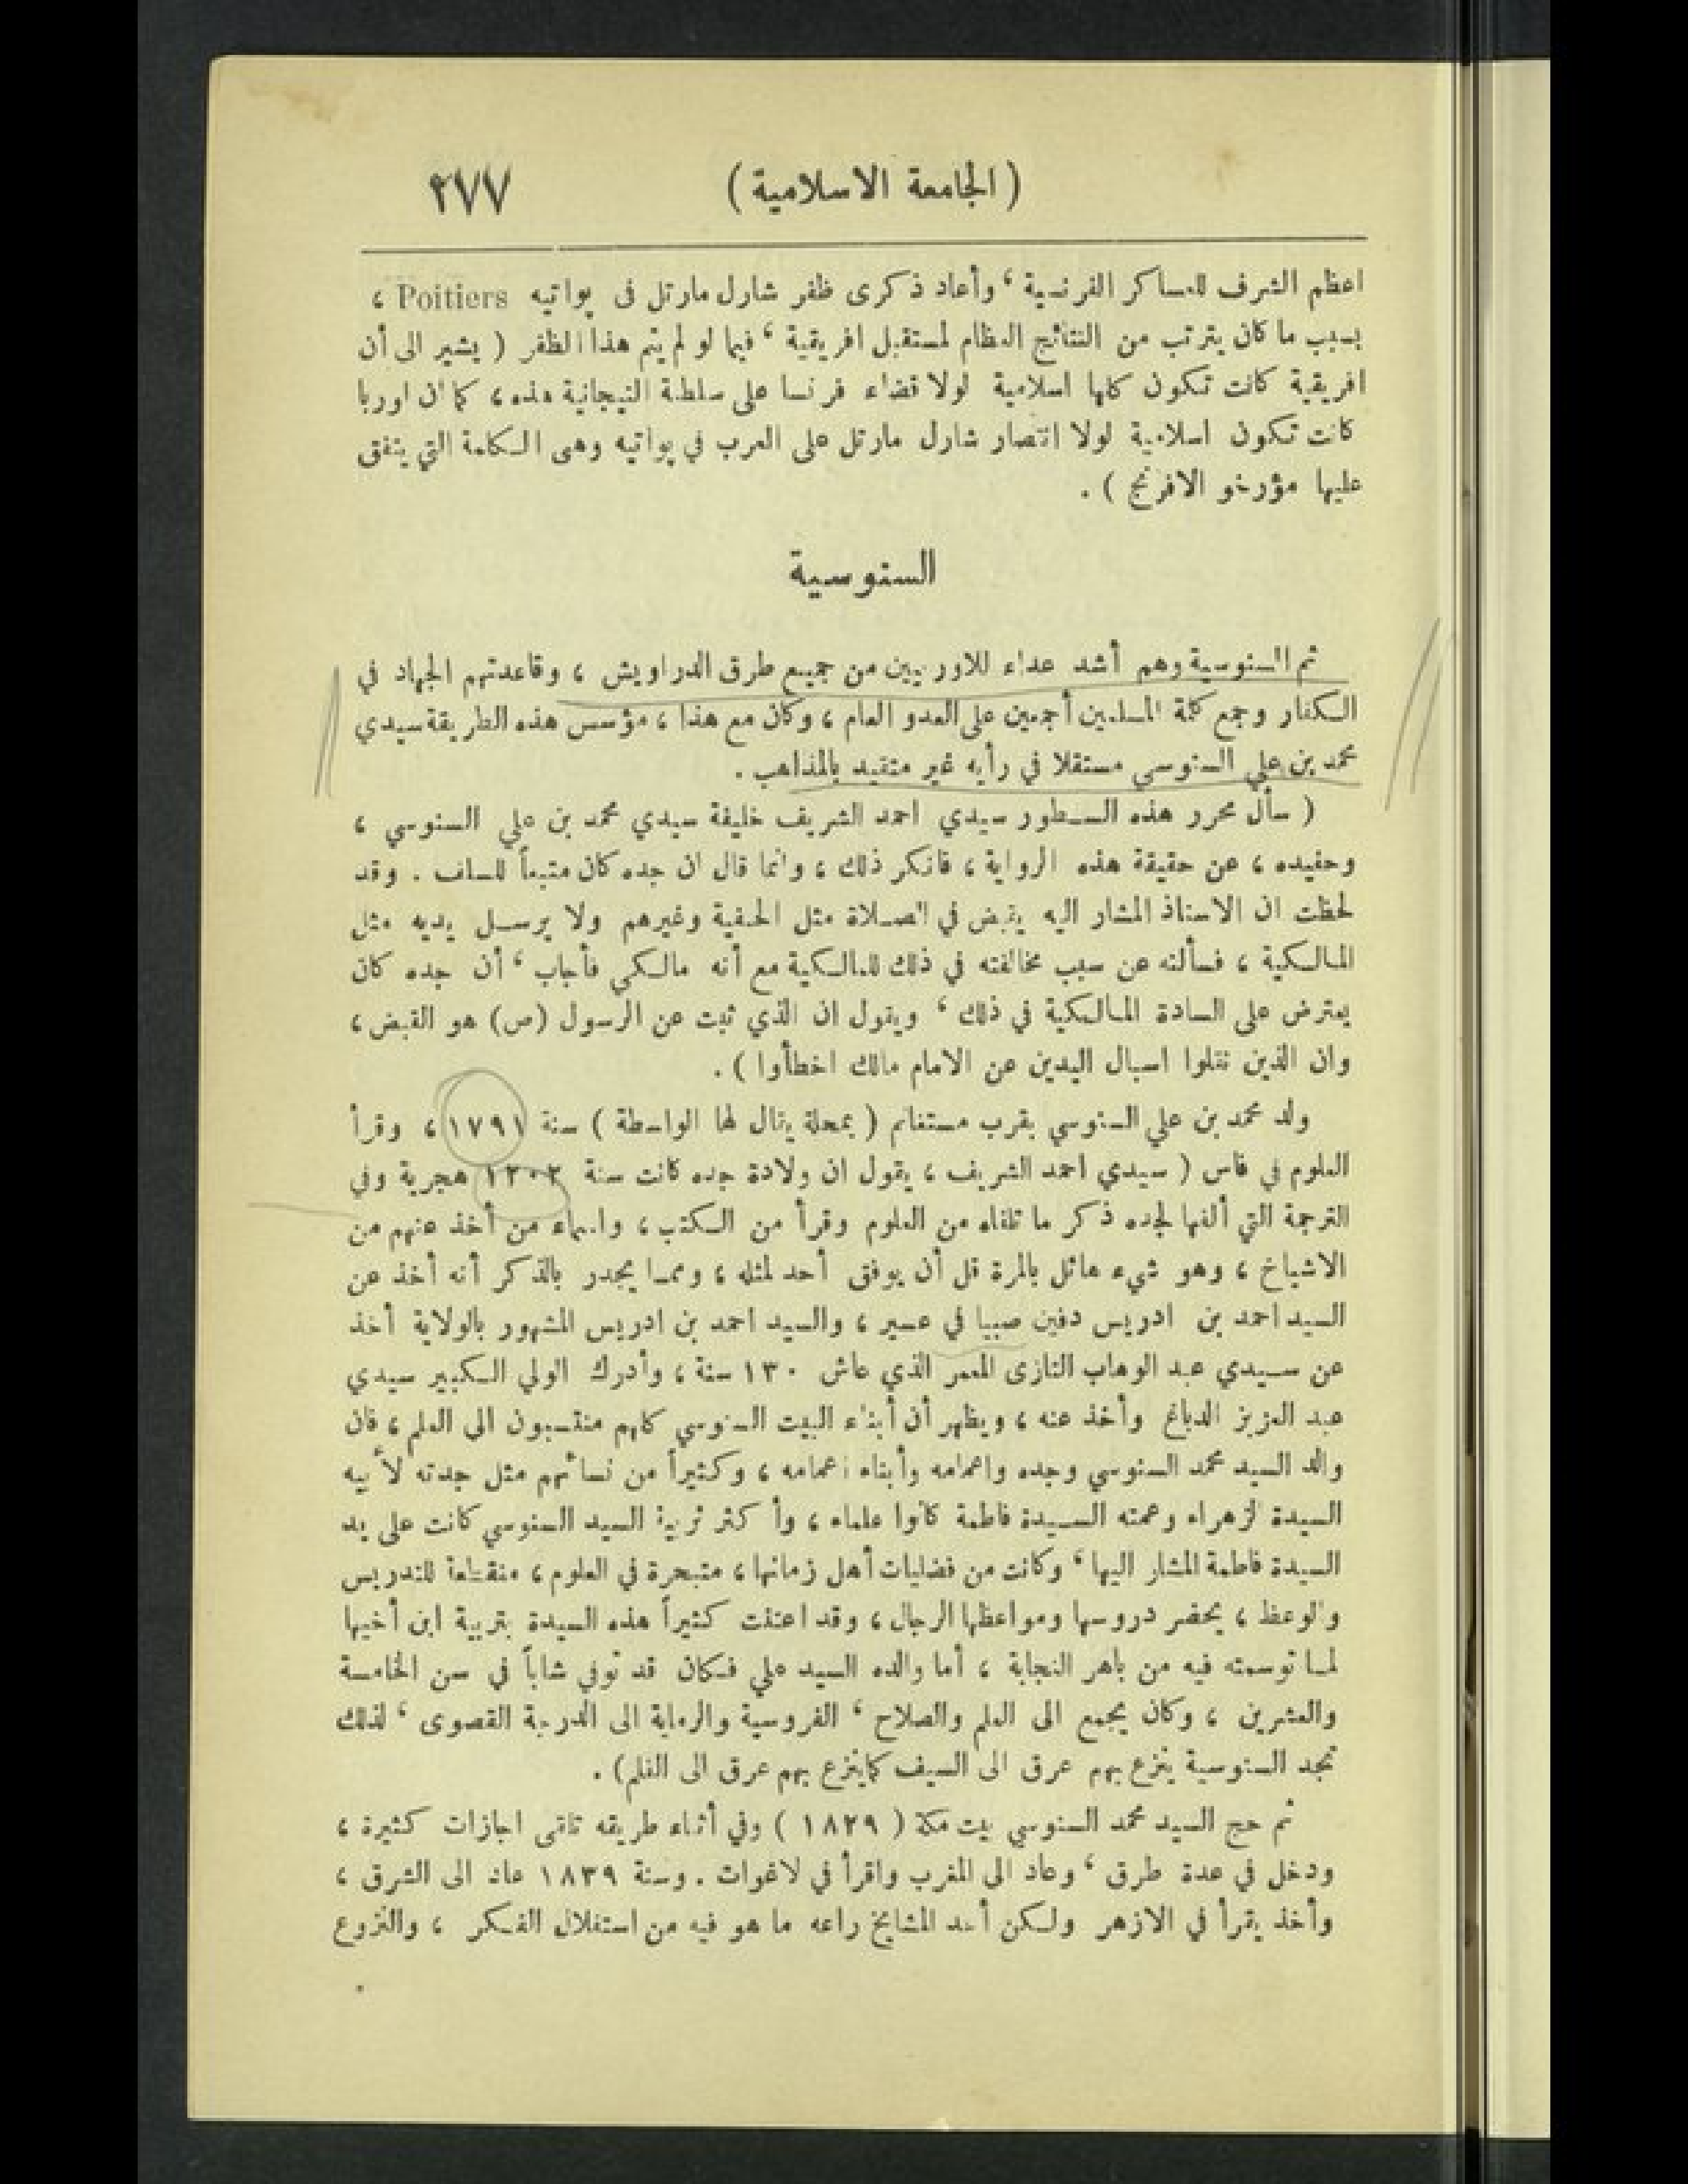 (الجامعة الاسلامية) ٢٧٧
اعظم الشرف للعساكر الفرنسية ، وأعاد ذكرى ظفر شارل مارتل فى پواتيه Poitiers ،
بسبب ما كان يترتب من النتائج العظام لمستقبل افريقية ، فيما لو لم يتم هذا الظفر ( يشير الى أن
افريقية كانت تكون كلها اسلامية لولا قضاء فرنسا على سلطنة التيجانية هذه ، كما ان اوربا
كانت تكون اسلامية لولا انتصار شارل مارتل على العرب في پواتيه وهى الكلمة التي يتفق
عليها مؤرخو الافرنج ) .
السنوسية
ثم السنوسية وهم أشد عداء للاوربيين من جميع طرق الدراويش ، وقاعدتهم الجهاد في
الكفار وجمع كلمة المسلمين أجمعين على العدو العام ، وكان مع هذا ، مؤسس هذه الطريقة سيدي
محمد بن علي السنوسي مستقلا في رأيه غير متقيد بالمذاهب .
( سأل محرر هذه السطور سيدي احمد الشريف خليفة سيدي محمد بن علي السنوسي ،
وحفيده ، عن حقيقة هذه الرواية ، فانكر ذلك ، وانما قال ان جده كان متبعاً للسلف . وقد
لحظت ان الاستاذ المشار اليه يقبض في الصلاة مثل الحنفية وغيرهم ولا يرسل يديه مثل
المالكية ، فسألته عن سبب مخالفته في ذلك للمالكية مع أنه مالكي فأجاب ، أن جده كان
يعترض على السادة المالكية في ذلك ، ويقول ان الذي ثبت عن الرسول (ص) هو القبض ،
وان الذين نقلوا اسبال اليدين عن الامام مالك اخطأوا ) .
ولد محمد بن علي السنوسي بقرب مستغانم ( بمحلة يقال لها الواسطة ) سنة ١٧٩١ ، وقرأ
العلوم في فاس ( سيدي احمد الشريف ، يقول ان ولادة جده كانت سنة ١٢٠٢ هجرية وفي
الترجمة التي ألفها لجده ذكر ما تلقاه من العلوم وقرأ من الكتب ، واسماء من أخذ عنهم من
الاشياخ ، وهو شيء هائل بالمرة قل أن يوفق أحد لمثله ، ومما يجدر بالذكر أنه أخذ عن
السيد احمد بن ادريس دفين صبيا في عسير ، والسيد احمد بن ادريس المشهور بالولاية أخذ
عن سيدي عبد الوهاب التازى المعمر الذي عاش ١٣٠ سنة ، وأدرك الولي الكبير سيدي
عبد العزيز الدباغ وأخذ عنه ، ويظهر أن أبناء البيت السنوسي كلهم منتسبون الى العلم ، فان
والد السيد محمد السنوسي وجده واعمامه وأبناء اعمامه ، وكثيراً من نسائهم مثل جدته لأبيه
السيدة الزهراء وعمته السيدة فاطمة كانوا علماء ، وأكثر تربية السيد السنوسي كانت على يد
السيدة فاطمة المشار اليها ، وكانت من فضليات أهل زمانها ، متبحرة في العلوم ، منقطعة للتدريس
والوعظ ، يحضر دروسها ومواعظها الرجال ، وقد اعتنت كثيراً هذه السيدة بتربية ابن أخيها
لما توسمته فيه من باهر النجابة ، أما والده السيد علي فكان قد توفي شاباً في سن الخامسة
والعشرين ، وكان يجمع الى العلم والصلاح ، الفروسية والرماية الى الدرجة القصوى ، لذلك
تجد السنوسية ينزع بهم عرق الى السيف كما ينزع بهم عرق الى القلم) .
ثم حج السيد محمد السنوسي بيت مكة ( ١٨٢٩ ) وفي أثناء طريقه تلقى اجازات كثيرة ،
ودخل في عدة طرق ، وعاد الى المغرب واقرأ في لاغوات . وسنة ١٨٣٩ عاد الى الشرق ،
وأخذ يقرأ في الازهر ولكن أحد المشايخ راعه ما هو فيه من استقلال الفكر ، والنزوع